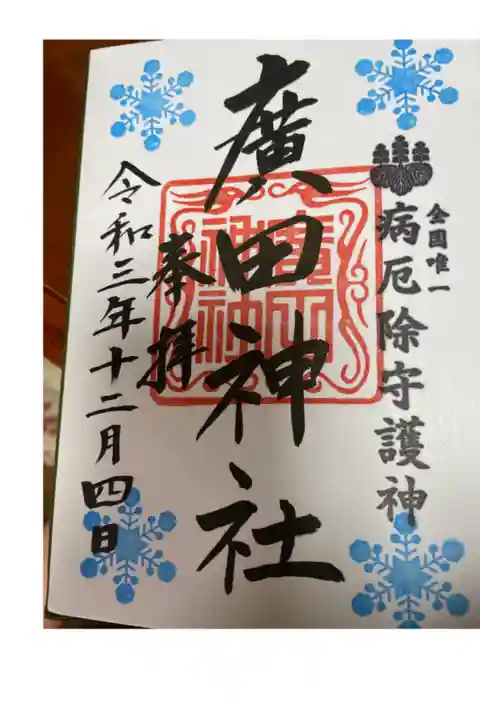 全国唯一
病厄除守護神
廣田神社
奉拝
令和三年十二月四日